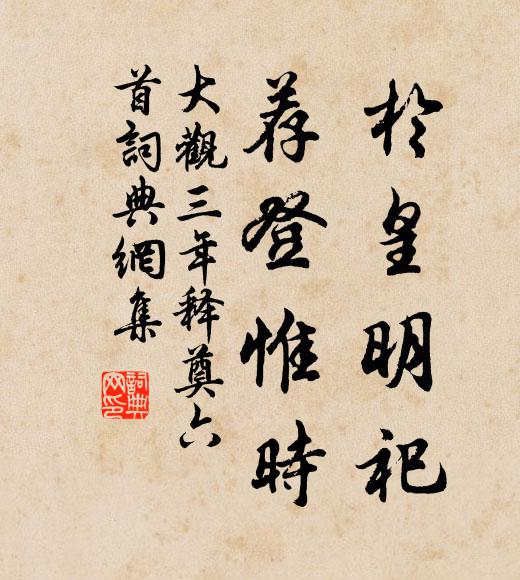 於皇明祀
荐登惟時
大觀三年释奠六
首詞典網集
詞典
网印